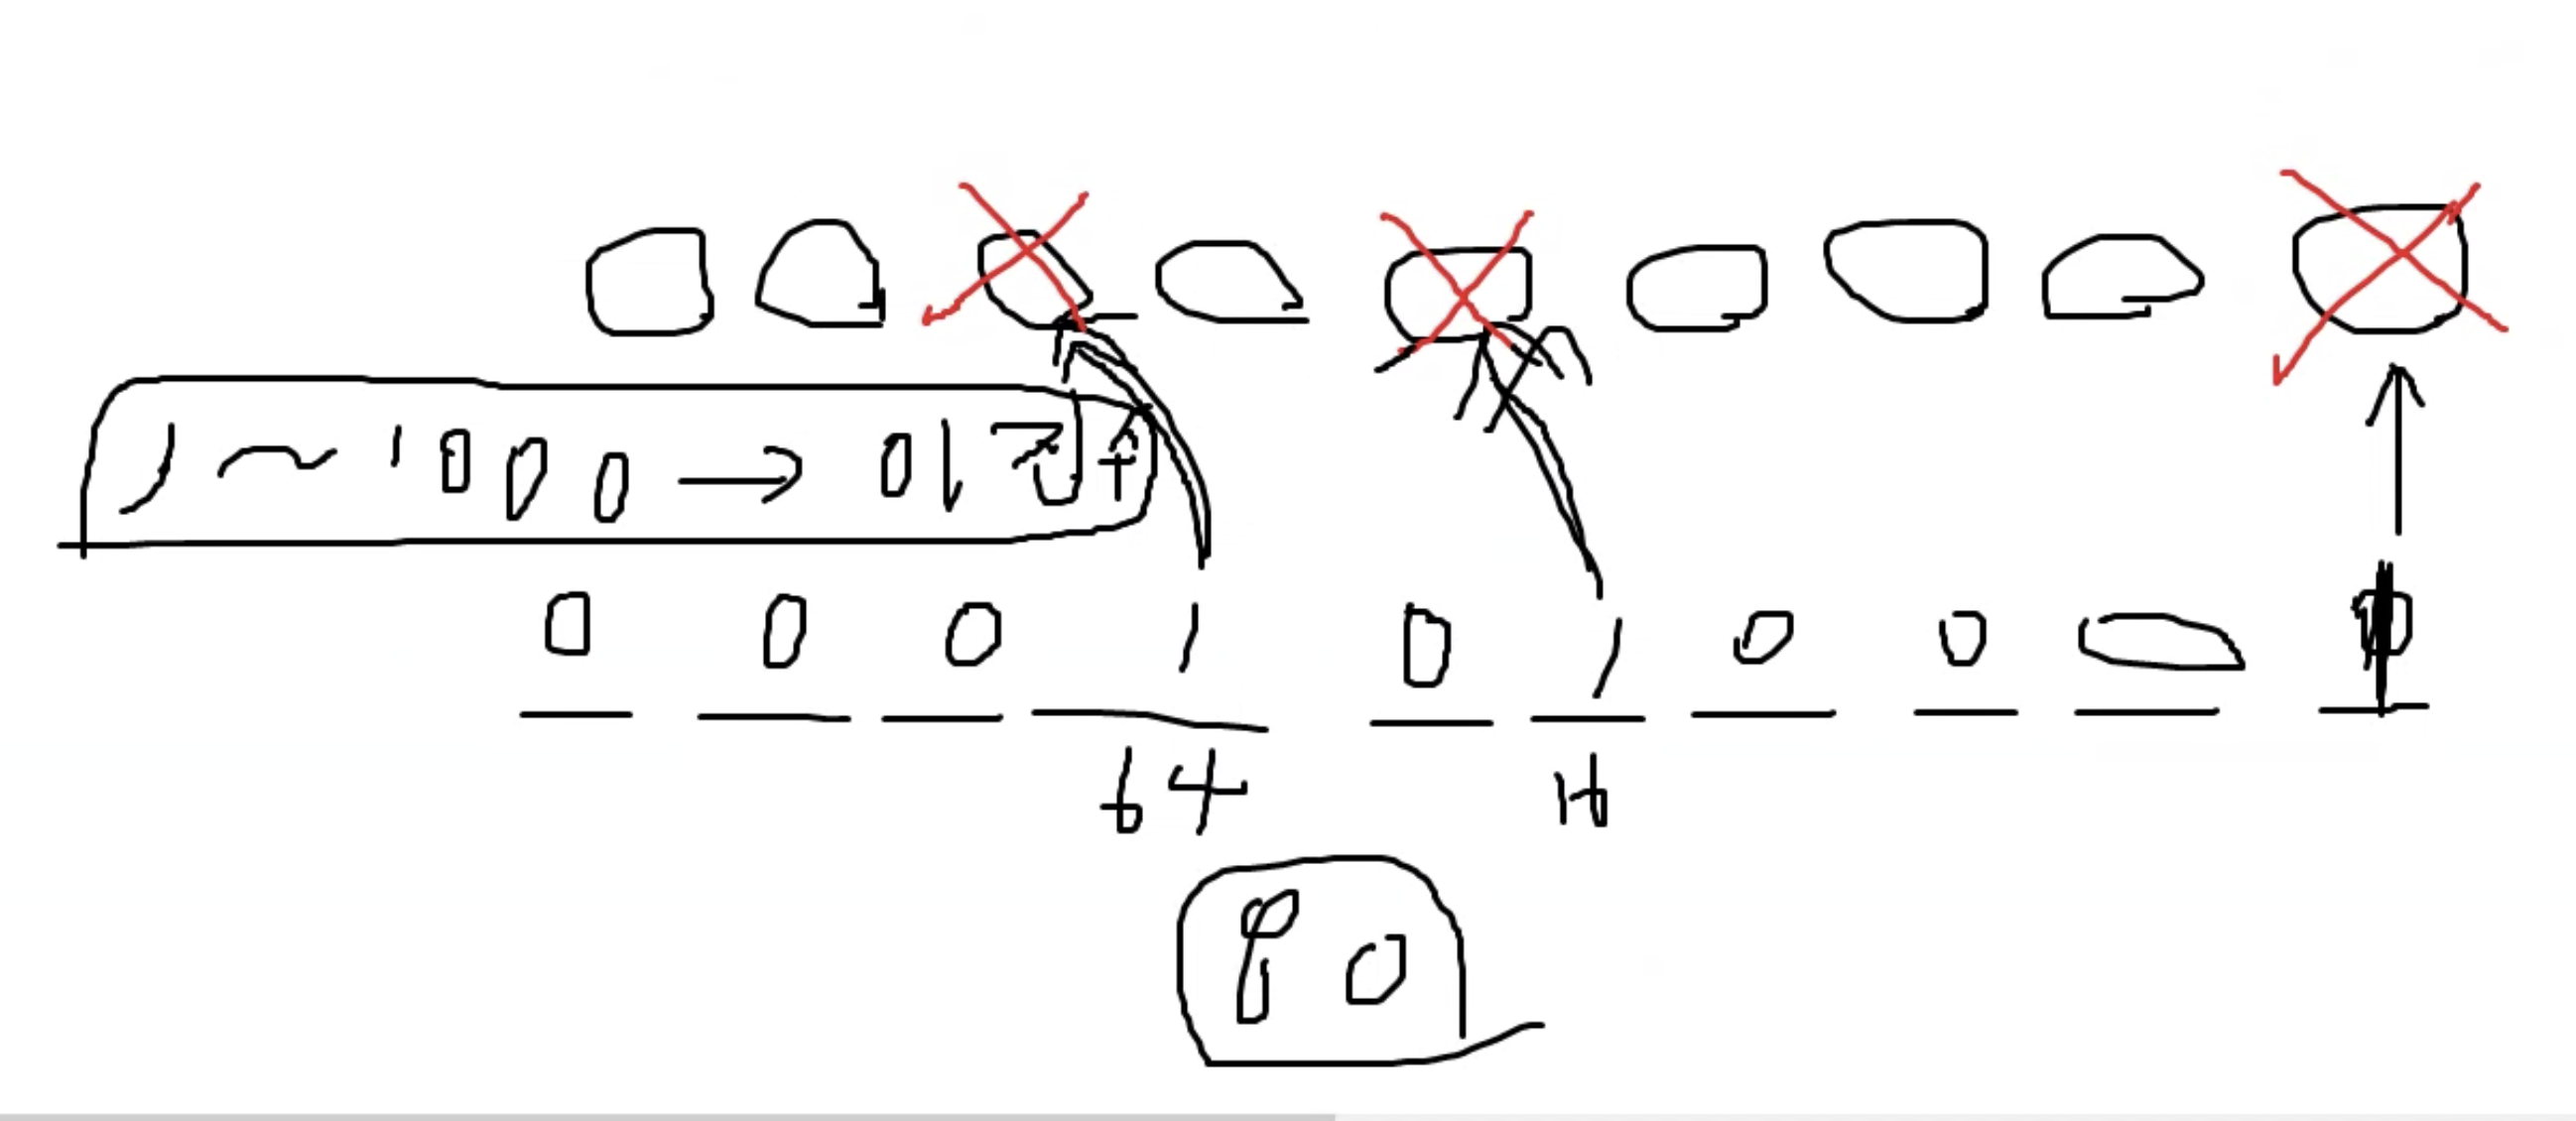 1 ~ 1000 → 이진수
0 0 0 1 0 1 0 0 0
64 16
80